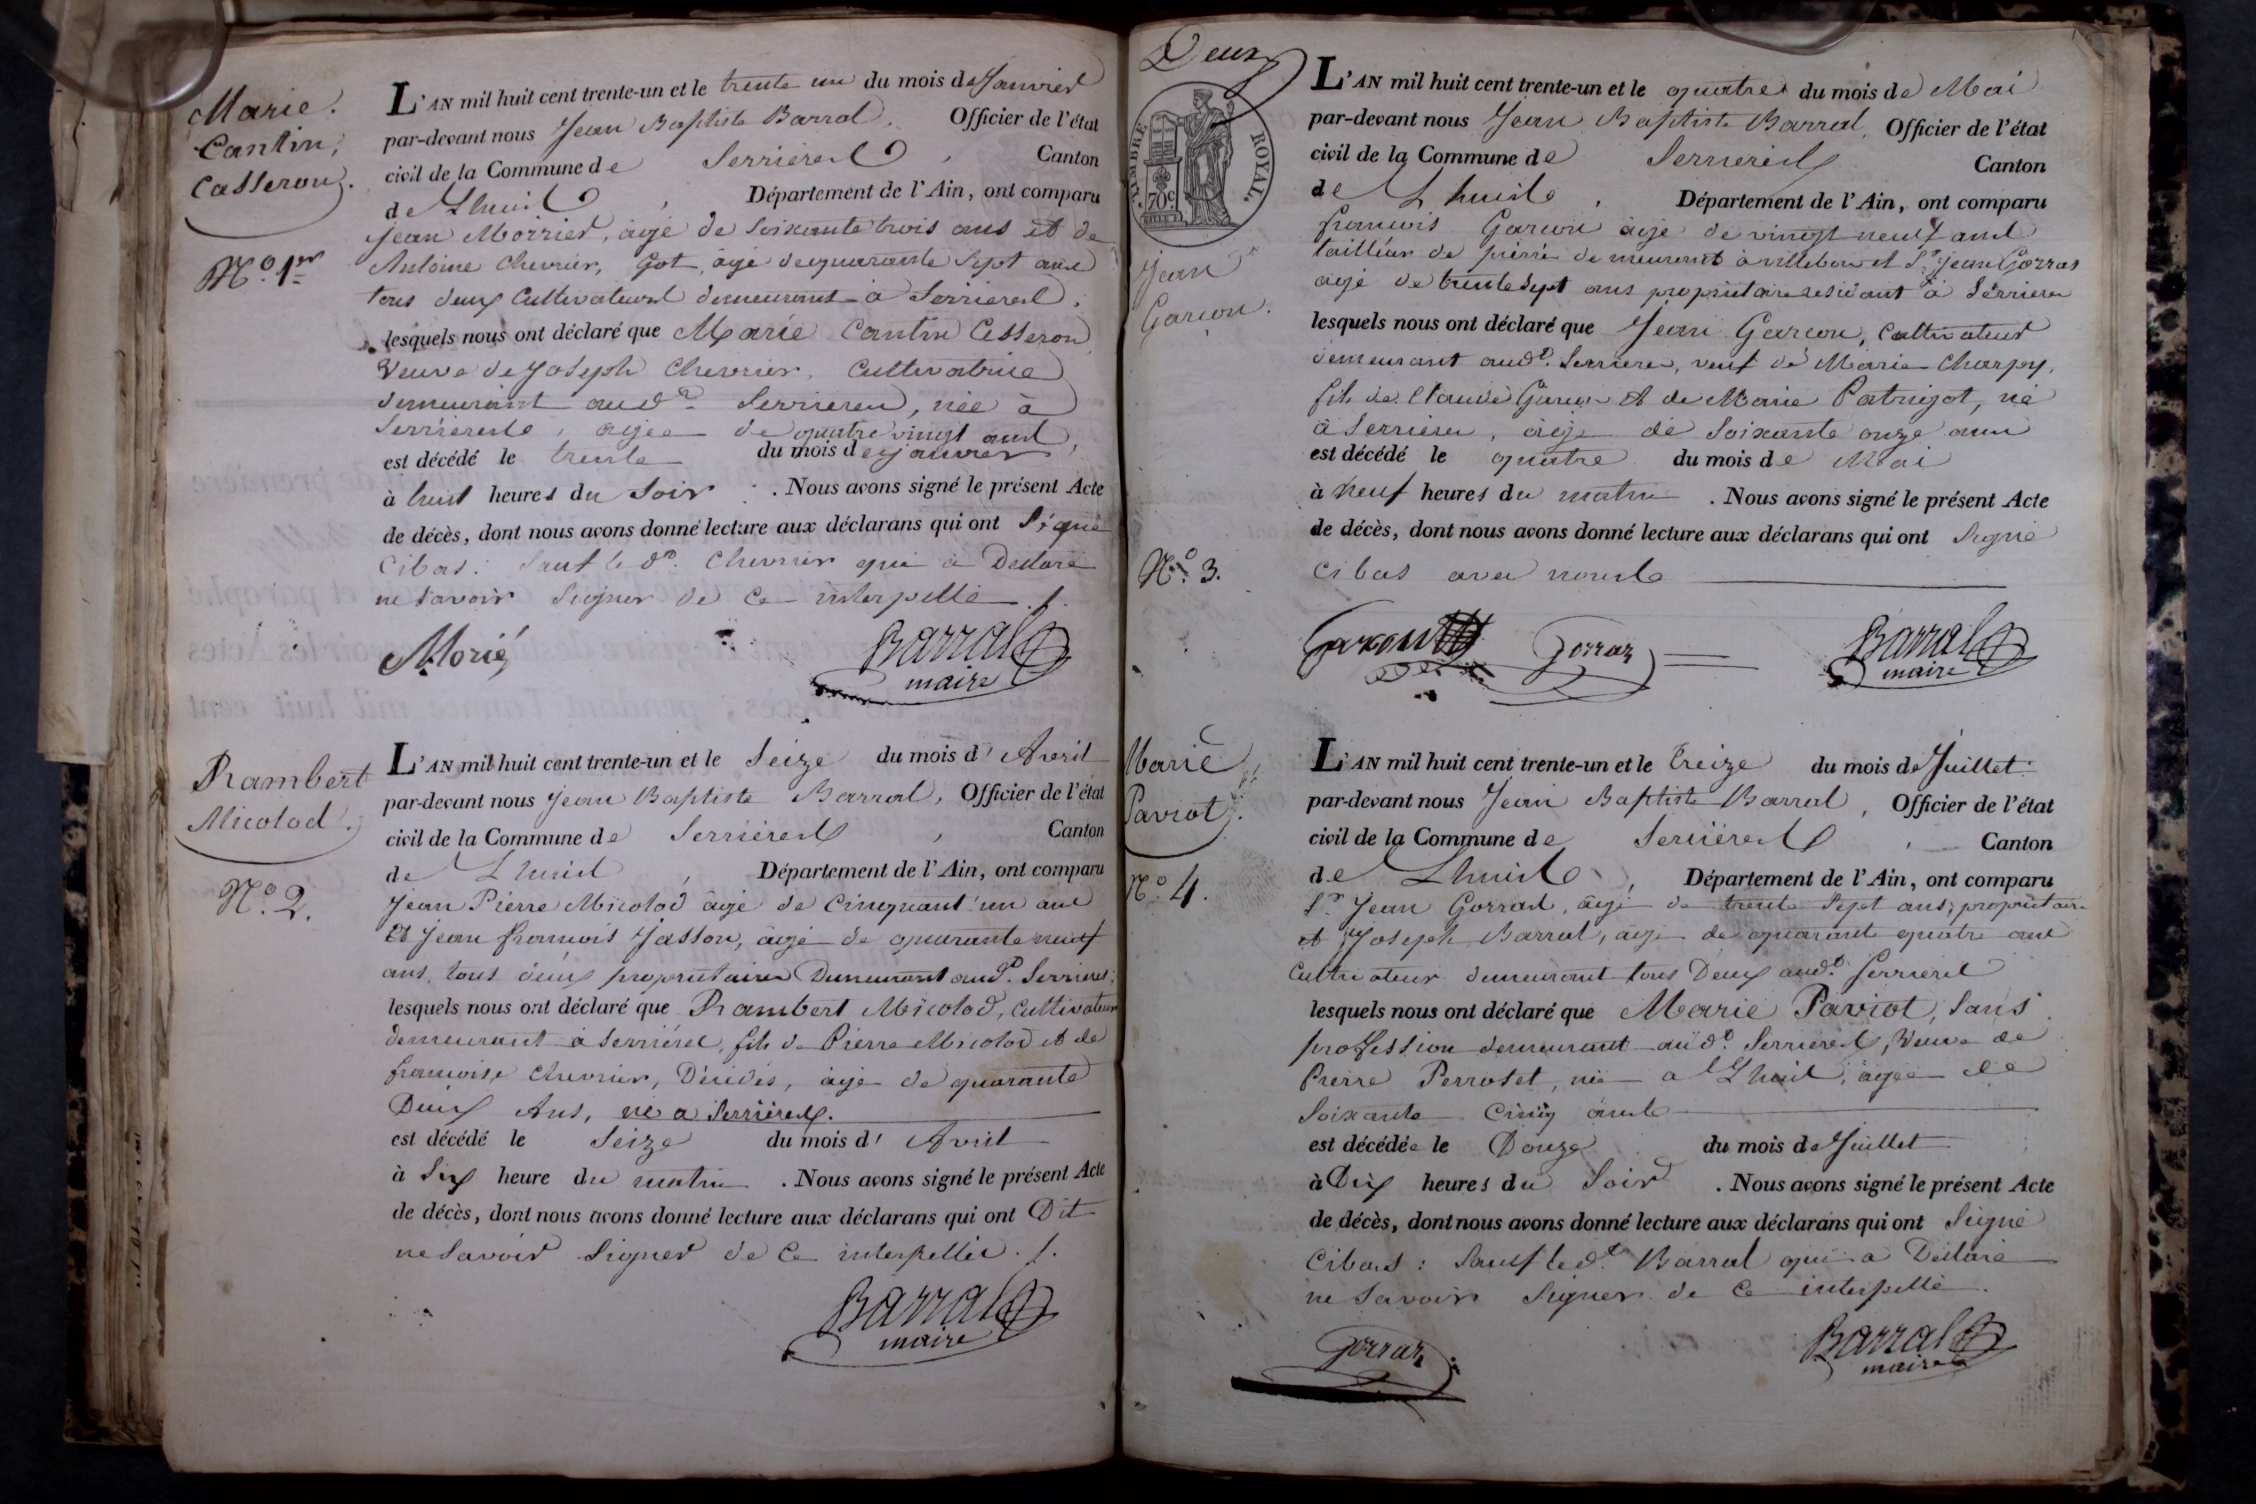 Marie
Cantin,
Casseron.
N.º 1er
L'AN mil huit cent trente-un et le trente un du mois de Janvier
par-devant nous Jean Baptiste Barral, Officier de l'état
civil de la Commune de Serrieres, Canton
de Lhuis, Département de l'Ain, ont comparu
jean Morrier, âgé de Soixante trois ans et de
Antoine Chevrier, Got, âgé de quarante Sept ans
tous deux Cultivateurs demeurant à Serrieres,
lesquels nous ont déclaré que Marie Cantin Cesseron
Veuve de joseph Chevrier, Cultivatrice
demeurant aud.t Serrieres, née à
Serrieres, agée de quatre vingt ans,
est décédé le trente du mois de janvier,
à huit heures du Soir. Nous avons signé le présent Acte
de décès, dont nous avons donné lecture aux déclarans qui ont Signé
Cibas: Sauf le d.t Chevrier qui a Declaré
ne Savoir Signer de Ce interpellé ./.
Morié
Barral
maire
Rambert
Micolod.
N.º 2.
L'AN mil huit cent trente-un et le Seize du mois d'Avril
par-devant nous jean Baptiste Barral, Officier de l'état
civil de la Commune de Serrieres, Canton
de Lhuis, Département de l'Ain, ont comparu
Jean Pierre Micolod âgé de Cinquant'un ans
Et jean francois Jasson, âgé de quarante neuf
ans, tous deux propriétaires Demeurant aud.t Serrieres,
lesquels nous ont déclaré que Rambert Micolod, Cultivateur
demeurant à Serrieres, fils de Pierre Micolod et de
francoise Chevrier, Décédés, âgé de quarante
Deux Ans, né a Serrieres.
est décédé le Seize du mois d'Avril
à Six heure du matin. Nous avons signé le présent Acte
de décès, dont nous avons donné lecture aux déclarans qui ont Dit
ne Savoir Signer de Ce interpellés ./.
Barral
maire
Deux
TIMBRE ROYAL.
70c
Jean
Garcon.
N.º 3.
L'AN mil huit cent trente-un et le quatre du mois de Mai
par-devant nous Jean Baptiste Barral, Officier de l'état
civil de la Commune de Serrieres Canton
de Lhuis, Département de l'Ain, ont comparu
francois Garcon âgé de vingt neuf ans
tailleur de pierre demeurant à villebois et S.r jean Gorras
âgé de trente Sept ans propriétaire residant à Serrieres
lesquels nous ont déclaré que Jean Garcon, Cultivateur
demeurant aud.t Serrieres, veuf de Marie Charpy,
fils de Claude Garcon et de Marie Patrigot, né
à Serrieres, âgé de Soixante onze ans
est décédé le quatre du mois de Mai
à neuf heures du matin. Nous avons signé le présent Acte
de décès, dont nous avons donné lecture aux déclarans qui ont Signé
Cibas avec nous
Garcon
Gorraz
Barral
maire
Marie
Paviot.
N.º 4.
L'AN mil huit cent trente-un et le treize du mois de Juillet
par-devant nous Jean Baptiste Barral, Officier de l'état
civil de la Commune de Serrieres, Canton
de Lhuis, Département de l'Ain, ont comparu
S.r Jean Gorras, âgé de trente Sept ans, propriétaire
et Joseph Barral, âgé de quarante quatre ans
Cultivateur demeurant tous Deux aud.t Serrieres
lesquels nous ont déclaré que Marie Paviot, Sans
profession demeurant aud.t Serrieres, Veuve de
Pierre Perrotet, née a Lhuis, âgée de
Soixante Cinq ans
est décédée le Douze du mois de Juillet
à Dix heures du Soir. Nous avons signé le présent Acte
de décès, dont nous avons donné lecture aux déclarans qui ont Signé
Cibas: Sauf le d.t Barral qui a Déclaré
ne Savoir Signer de Ce interpellé.
Gorraz
Barral
maire